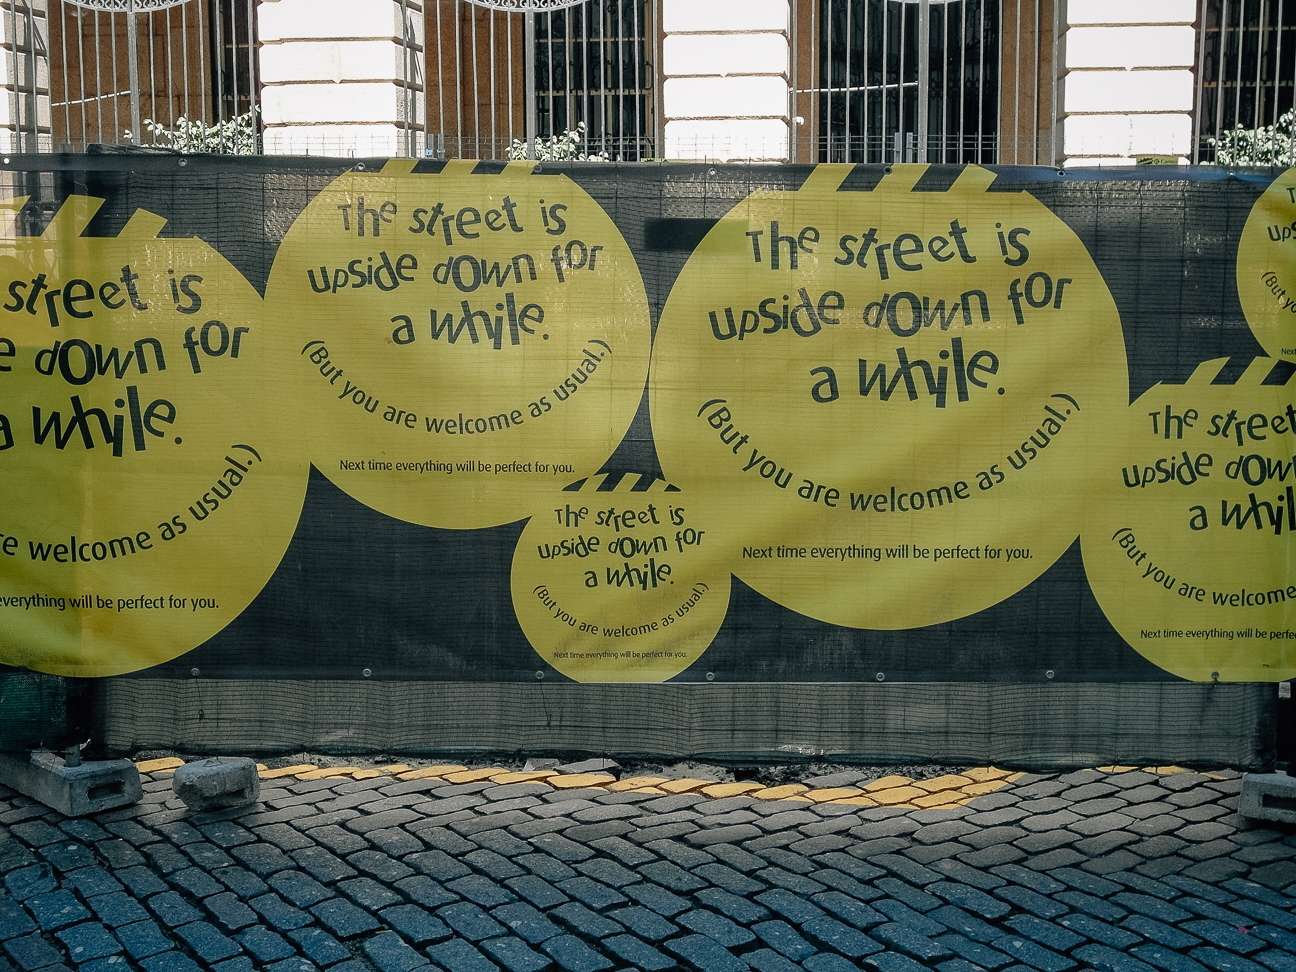 street is
e down for
a while.
re welcome as usual.)
everything will be perfect for you.
The street is
upside down for
a while.
(But you are welcome as usual.)
Next time everything will be perfect for you.
The street is
upside down for
a while.
(But you are welcome as usual.)
Next time everything will be perfect for you.
The street is
upside down for
a while.
(But you are welcome as usual.)
Next time everything will be perfect for you.
T
ups
(But yo
Next
The street
upside dow
a whil
(But you are welcome
Next time everything will be perfe